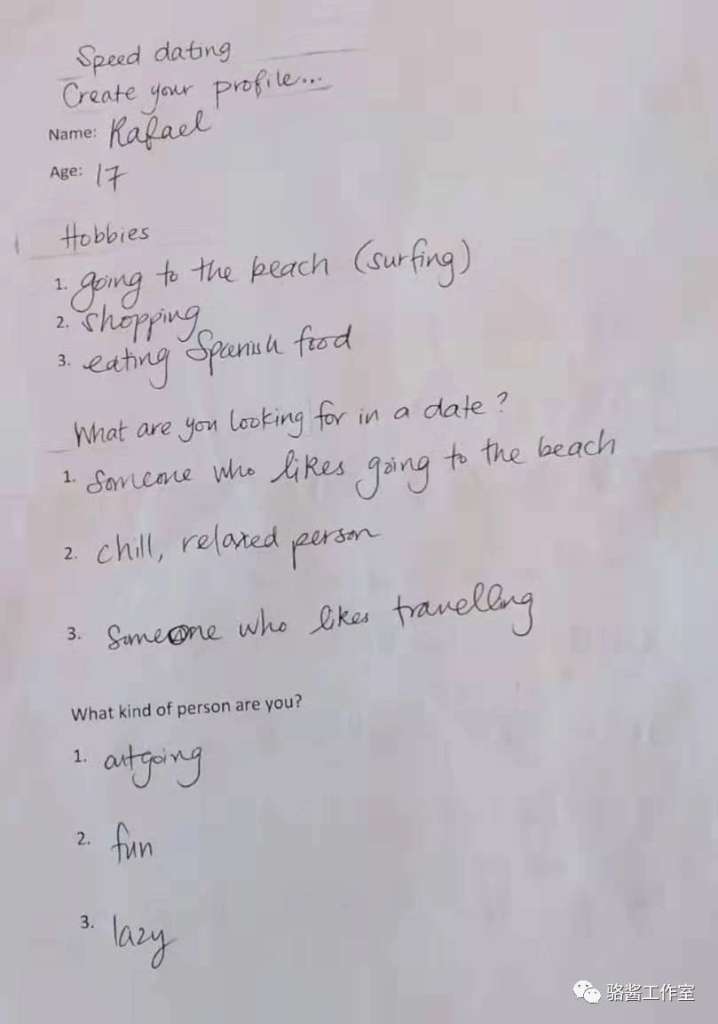 Speed dating
Create your profile...
Name: Rafael
Age: 17
Hobbies
1. going to the beach (surfing)
2. shopping
3. eating Spanish food
What are you looking for in a date?
1. Someone who likes going to the beach
2. chill, relaxed person
3. Someone who likes travelling
What kind of person are you?
1. outgoing
2. fun
3. lazy
骆酱工作室